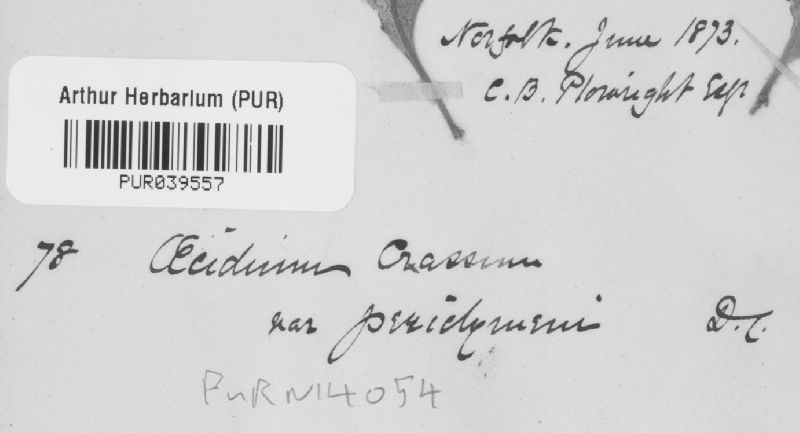 Norfolk. June 1873.
C. B. Plowright Esq
Arthur Herbarium (PUR)
PUR039557
78 Œcidium Crassum
var periclymeni D.C.
PURN14054